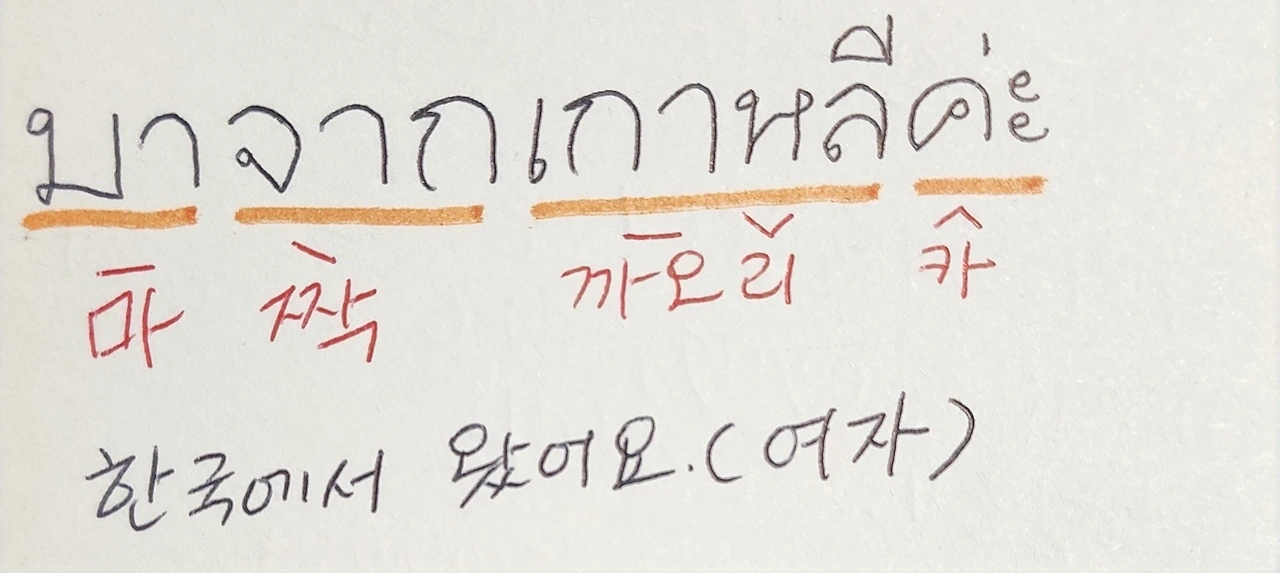 มาจากเกาหลีค่ะ
마 짝 까오리 카
한국에서 왔어요.(여자)